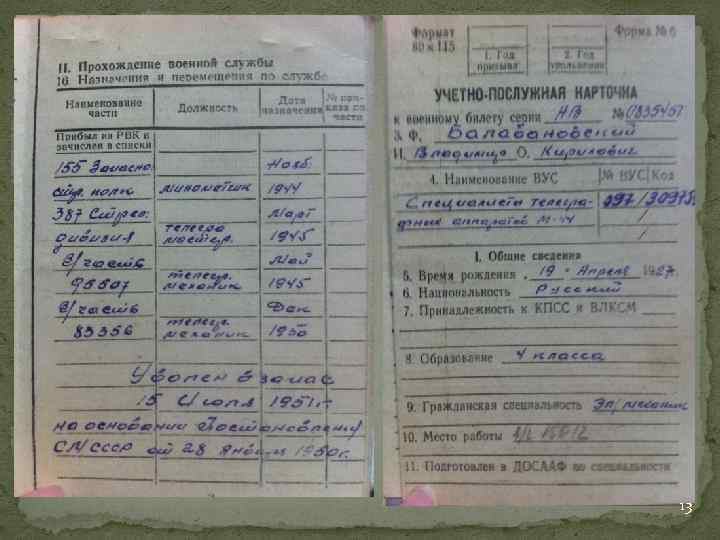 II. Прохождение военной службы
10 Назначения и перемещения по службе
Наименование части Должность Дата назначения № приказа по части
Прибыл из РВК и зачислен в списки
155 Запасно. Нояб.
стр. полк минометчик 1944
387 Стрел. телегр. Март
дивизия мастер. 1945
В/часть телегр. Май
95507 механик 1945
В/часть телегр. Дек
83356 механик 1950
Уволен в запас
15 Июля 1951 г.
на основании Постановления
СМ СССР от 28 января 1950г.
Формат
80×115
1. Год призыва
2. Год увольнения
Форма № 6
УЧЕТНО-ПОСЛУЖНАЯ КАРТОЧКА
к военному билету серии НВ № 0835451
3. Ф. Балабановский
И. Владимир О. Кирилович
4. Наименование ВУС № ВУС Код
Специалисты телегра-
фных аппаратов М-44
I. Общие сведения
5. Время рождения 19 Апреля 1927.
6. Национальность Русский
7. Принадлежность к КПСС и ВЛКСМ
8. Образование 4 класса
9. Гражданская специальность Эл/механик
10. Место работы
11. Подготовлен в ДОСААФ по специальности
13